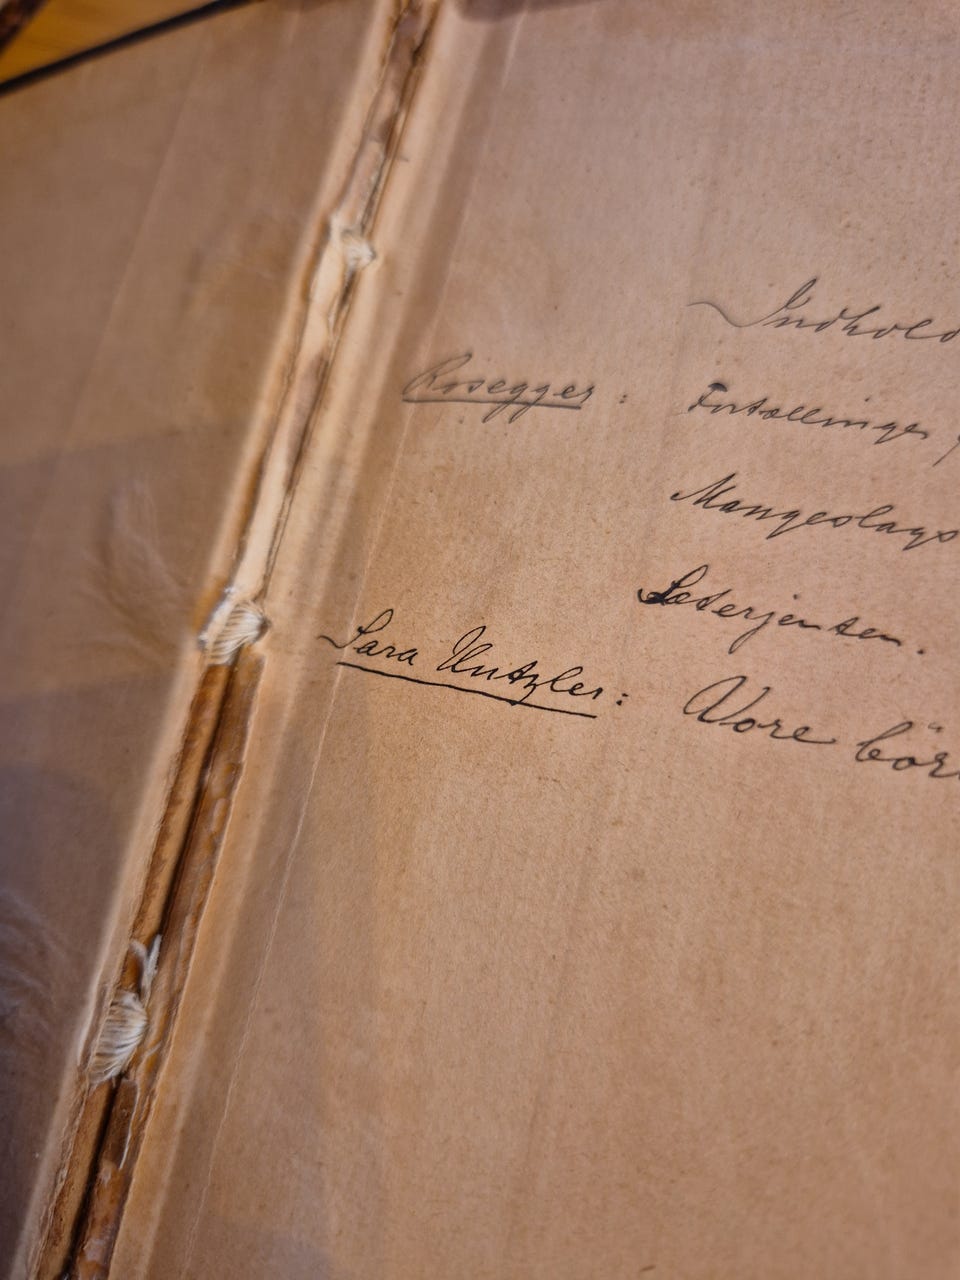 Indhold
Rosegger: Fortællinger
Mangeslags
Sæterjenten.
Sara Hutzler: Vore bör